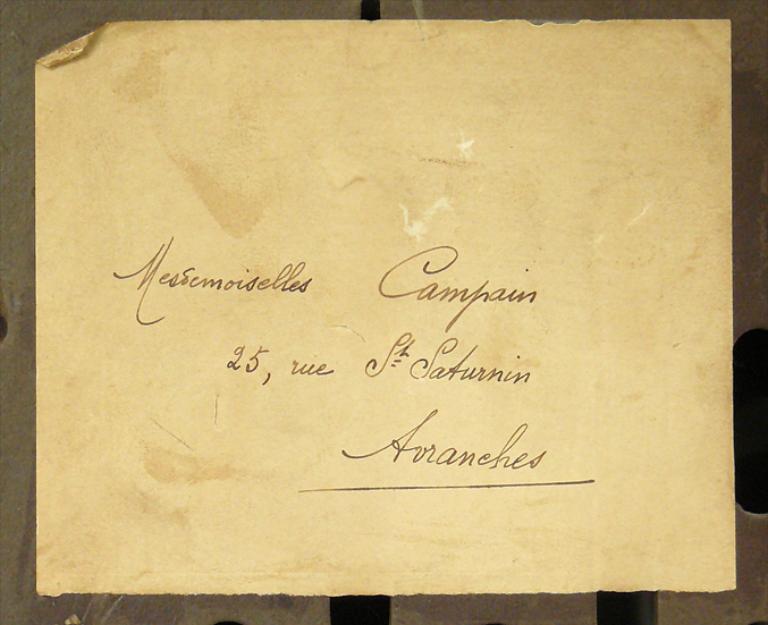 Mesdemoiselles Campain
25, rue St Saturnin
Avranches